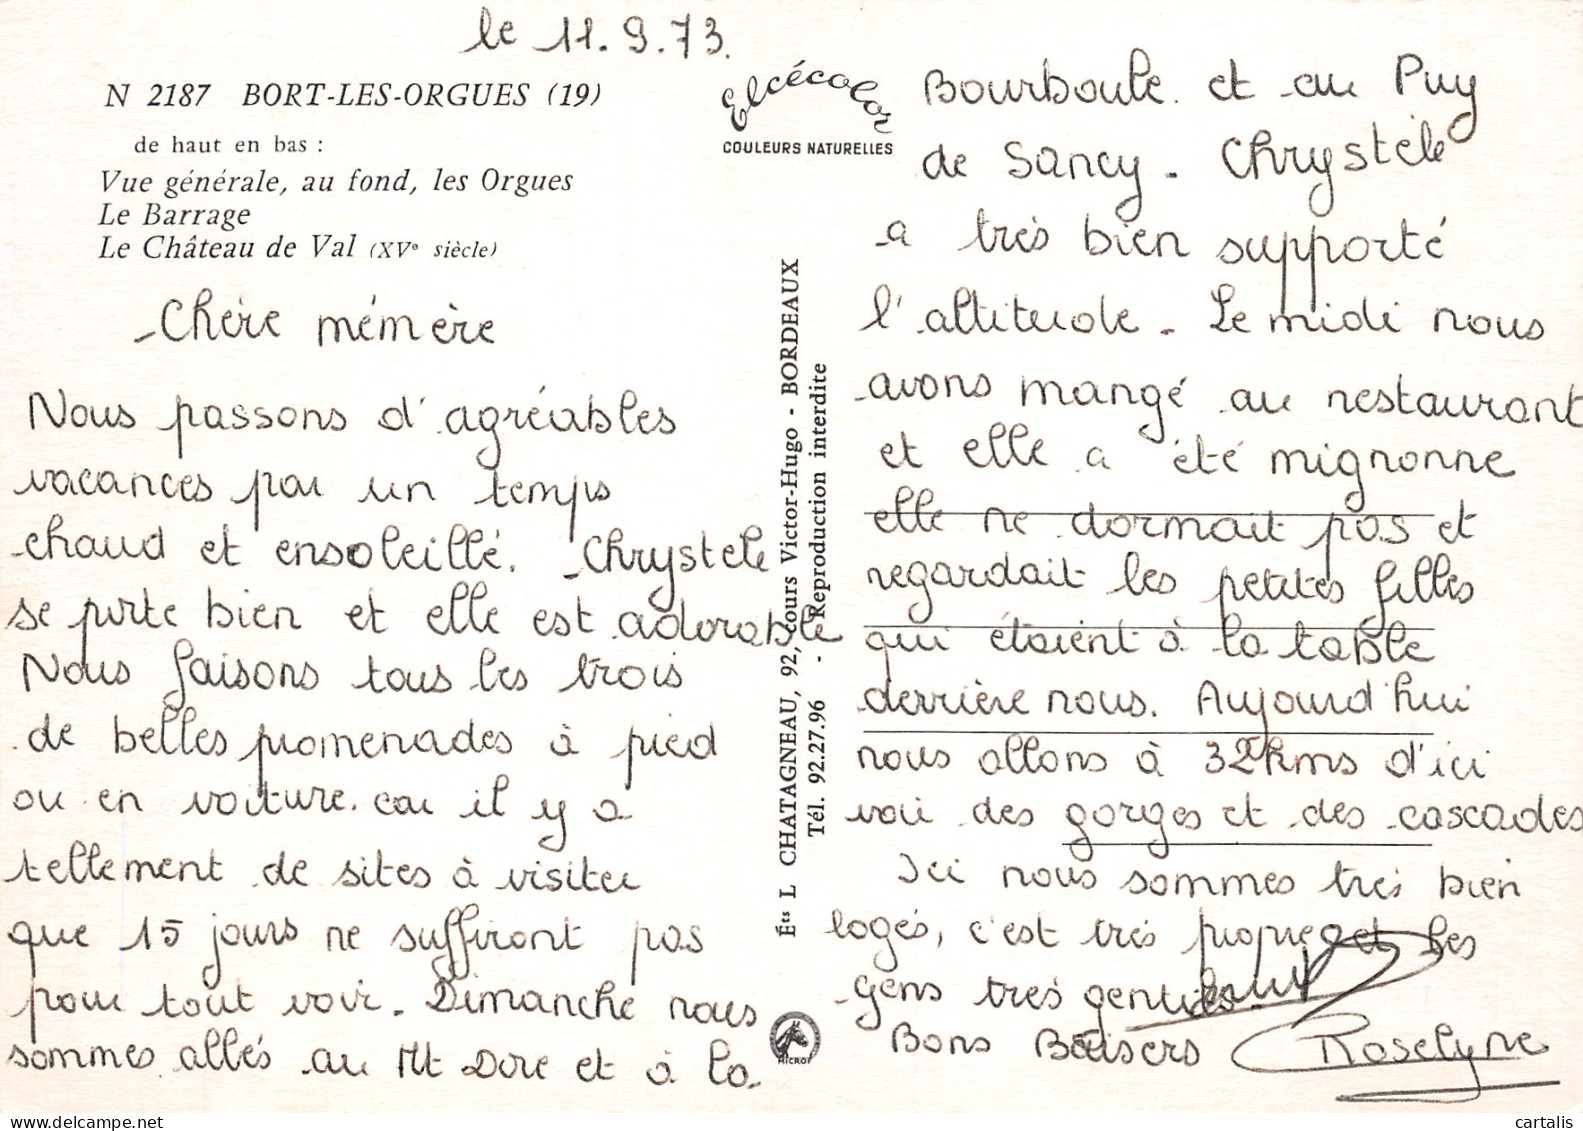 le 11.9.73.
N 2187 BORT-LES-ORGUES (19)
de haut en bas :
Vue générale, au fond, les Orgues
Le Barrage
Le Château de Val (XVe siècle)
Chère mémère
Nous passons d'agréables
vacances par un temps
chaud et ensoleillé. Chrystele
se porte bien et elle est adorable
Nous faisons tous les trois
de belles promenades à pied
ou en voiture. car il y a
tellement de sites à visiter
que 15 jours ne suffiront pas
pour tout voir. Dimanche nous
sommes allés au Mt Dore et à la
Elcécolor
COULEURS NATURELLES
Éts L CHATAGNEAU, 92, cours Victor-Hugo - BORDEAUX
Tél. 92.27.96 - Reproduction interdite
MICRO
Bourboule. et au Puy
de Sancy. Chrystèle
a très bien supporté
l'altitude. Le midi nous
avons mangé au restaurant
et elle a été mignonne
elle ne dormait pas et
regardait les petites filles
qui étaient à la table
derrière nous. Aujourd'hui
nous allons à 32kms d'ici
voir des gorges et des cascades
Ici nous sommes très bien
logés, c'est très propre et les
gens très gentils.
Bons Baisers Roselyne
cartalis